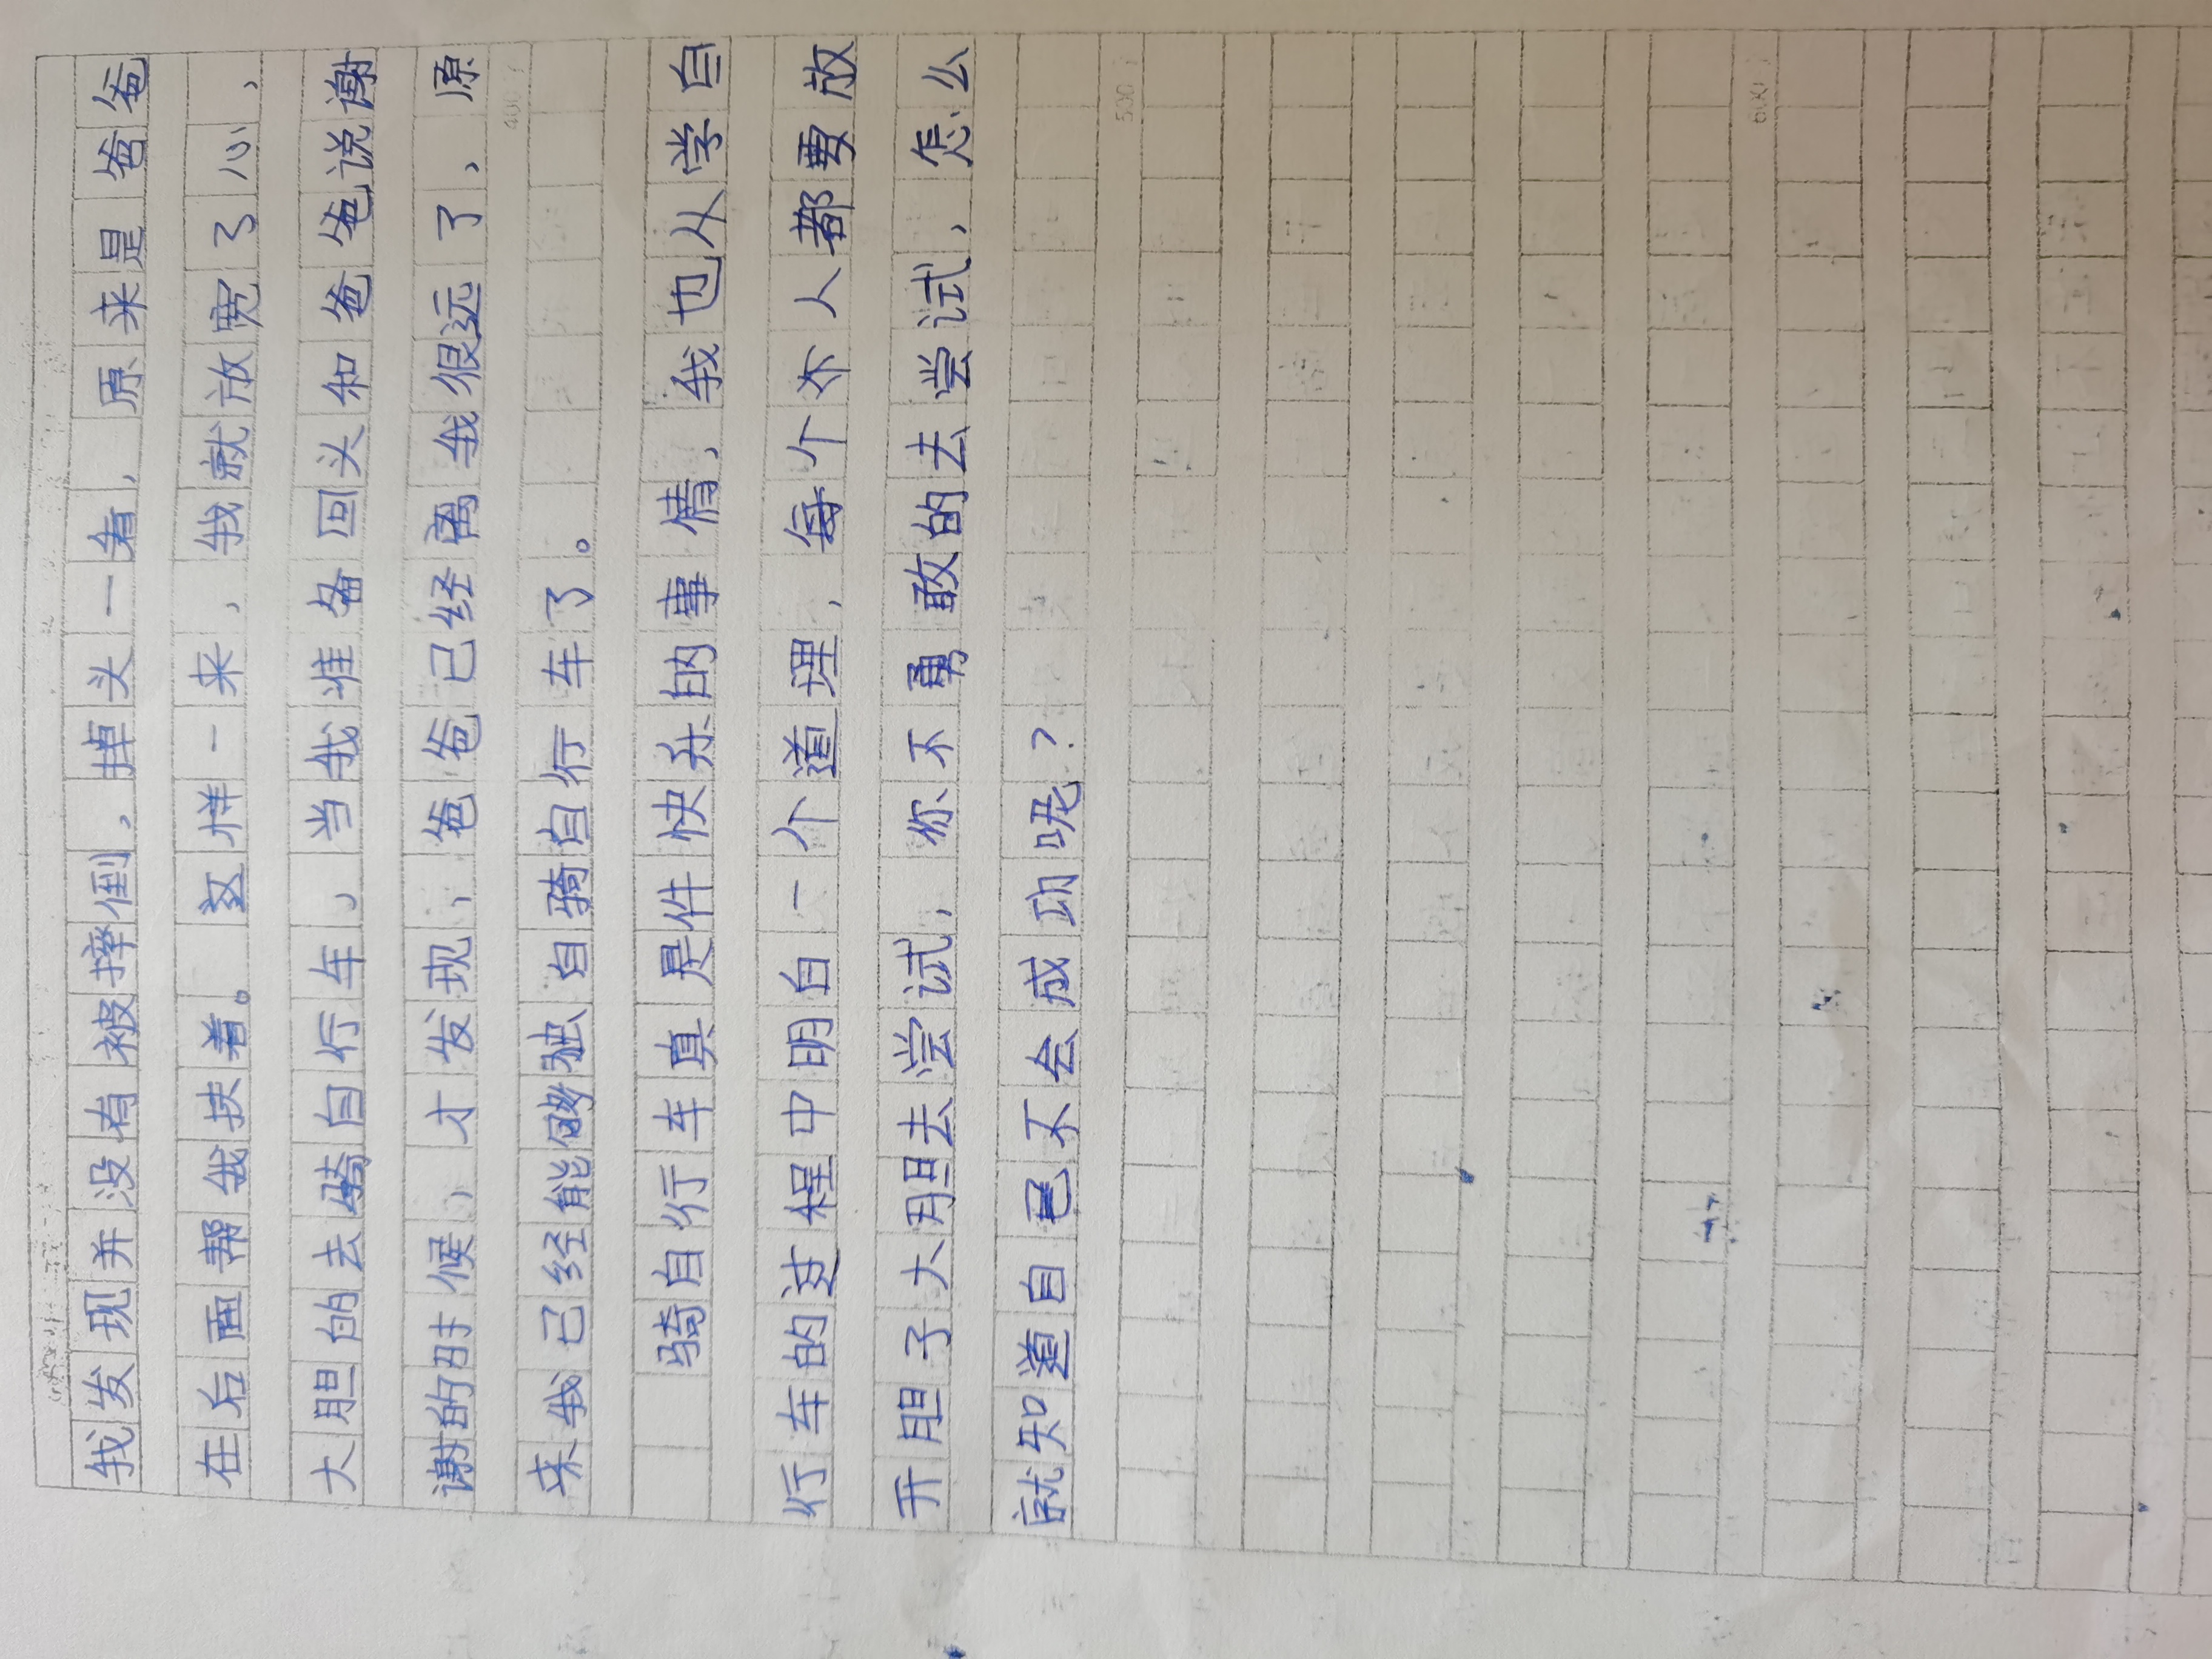 我发现并没有被摔倒，掉头一看，原来是爸爸
在后面帮我扶着。这样一来，我就放宽了心，
大胆的去骑自行车，当我准备回头和爸爸说谢
谢的时候，才发现，爸爸已经离我很远了，原
400
来我已经能够独自骑自行车了。
骑自行车真是件快乐的事情，我也从学自
行车的过程中明白一个道理，每个个人都要放
开胆子大胆去尝试，你不勇敢的去尝试，怎么
就知道自己不会成功呢？
500
600